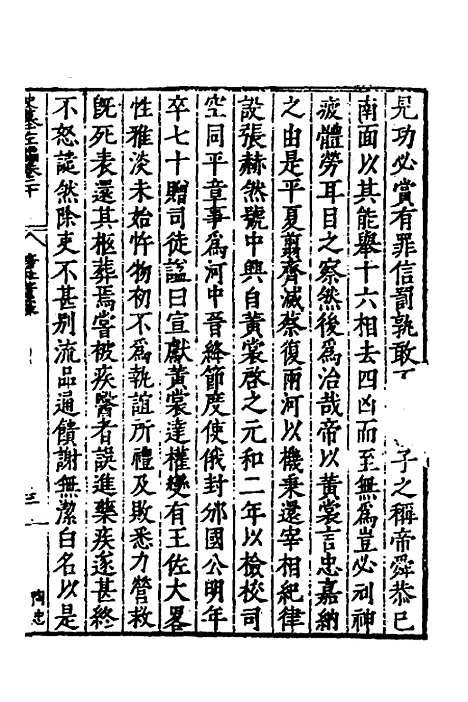 見功必賞有罪信罰孰敢 子之稱帝舜恭已
南面以其能舉十六相去四凶而至無爲豈必刓神
疲體勞耳目之察然後爲治哉帝以黃裳言忠嘉納
之由是平夏翦齊滅蔡復兩河以機秉還宰相紀律
設張赫然號中興自黃裳啓之元和二年以檢校司
空同平章事爲河中晉絳節度使俄封邠國公明年
卒七十贈司徒謚曰宣獻黃裳達權變有王佐大畧
性雅淡未始忤物初不爲執誼所禮及敗悉力營救
旣死表還其柩葬焉嘗被疾醫者誤進藥疾遂甚終
不怒譴然除吏不甚别流品通饋謝無潔白名以是